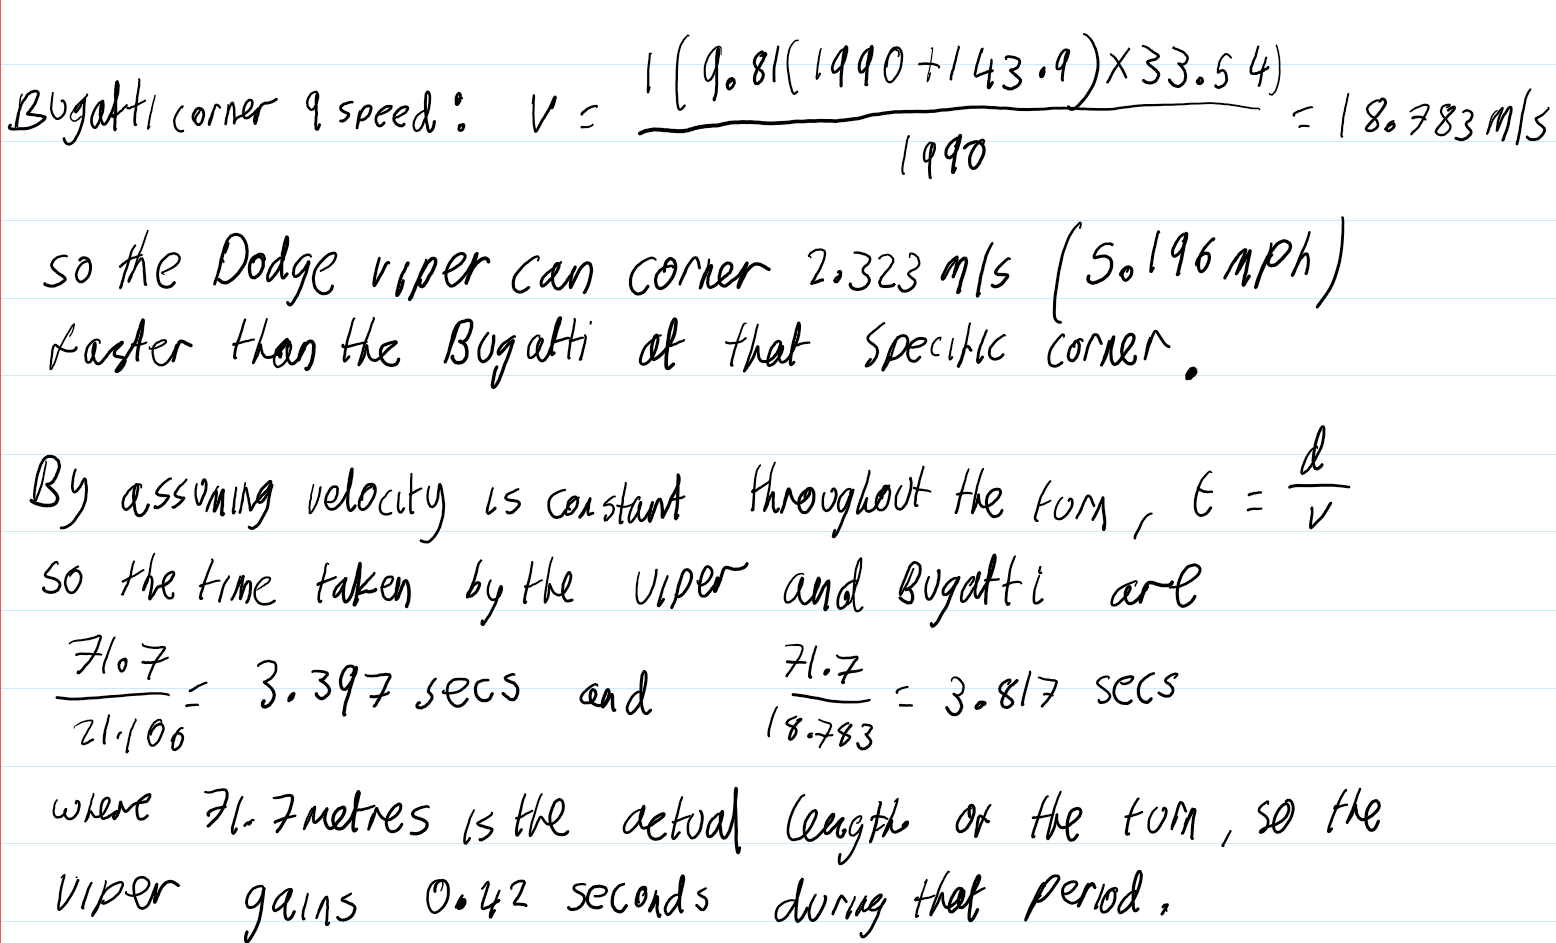 Bugatti corner 9 speed: v = 1(9.81(1990+143.9)×33.54) / 1990 = 18.783 m/s
so the Dodge viper can corner 2.323 m/s (5.196 mph)
faster than the Bugatti at that specific corner.
By assuming velocity is constant throughout the turn, t = d/v
so the time taken by the viper and Bugatti are
71.7/21.106 = 3.397 secs and 71.7/18.783 = 3.817 secs
where 71.7 metres is the actual length of the turn, so the
viper gains 0.42 seconds during that period.